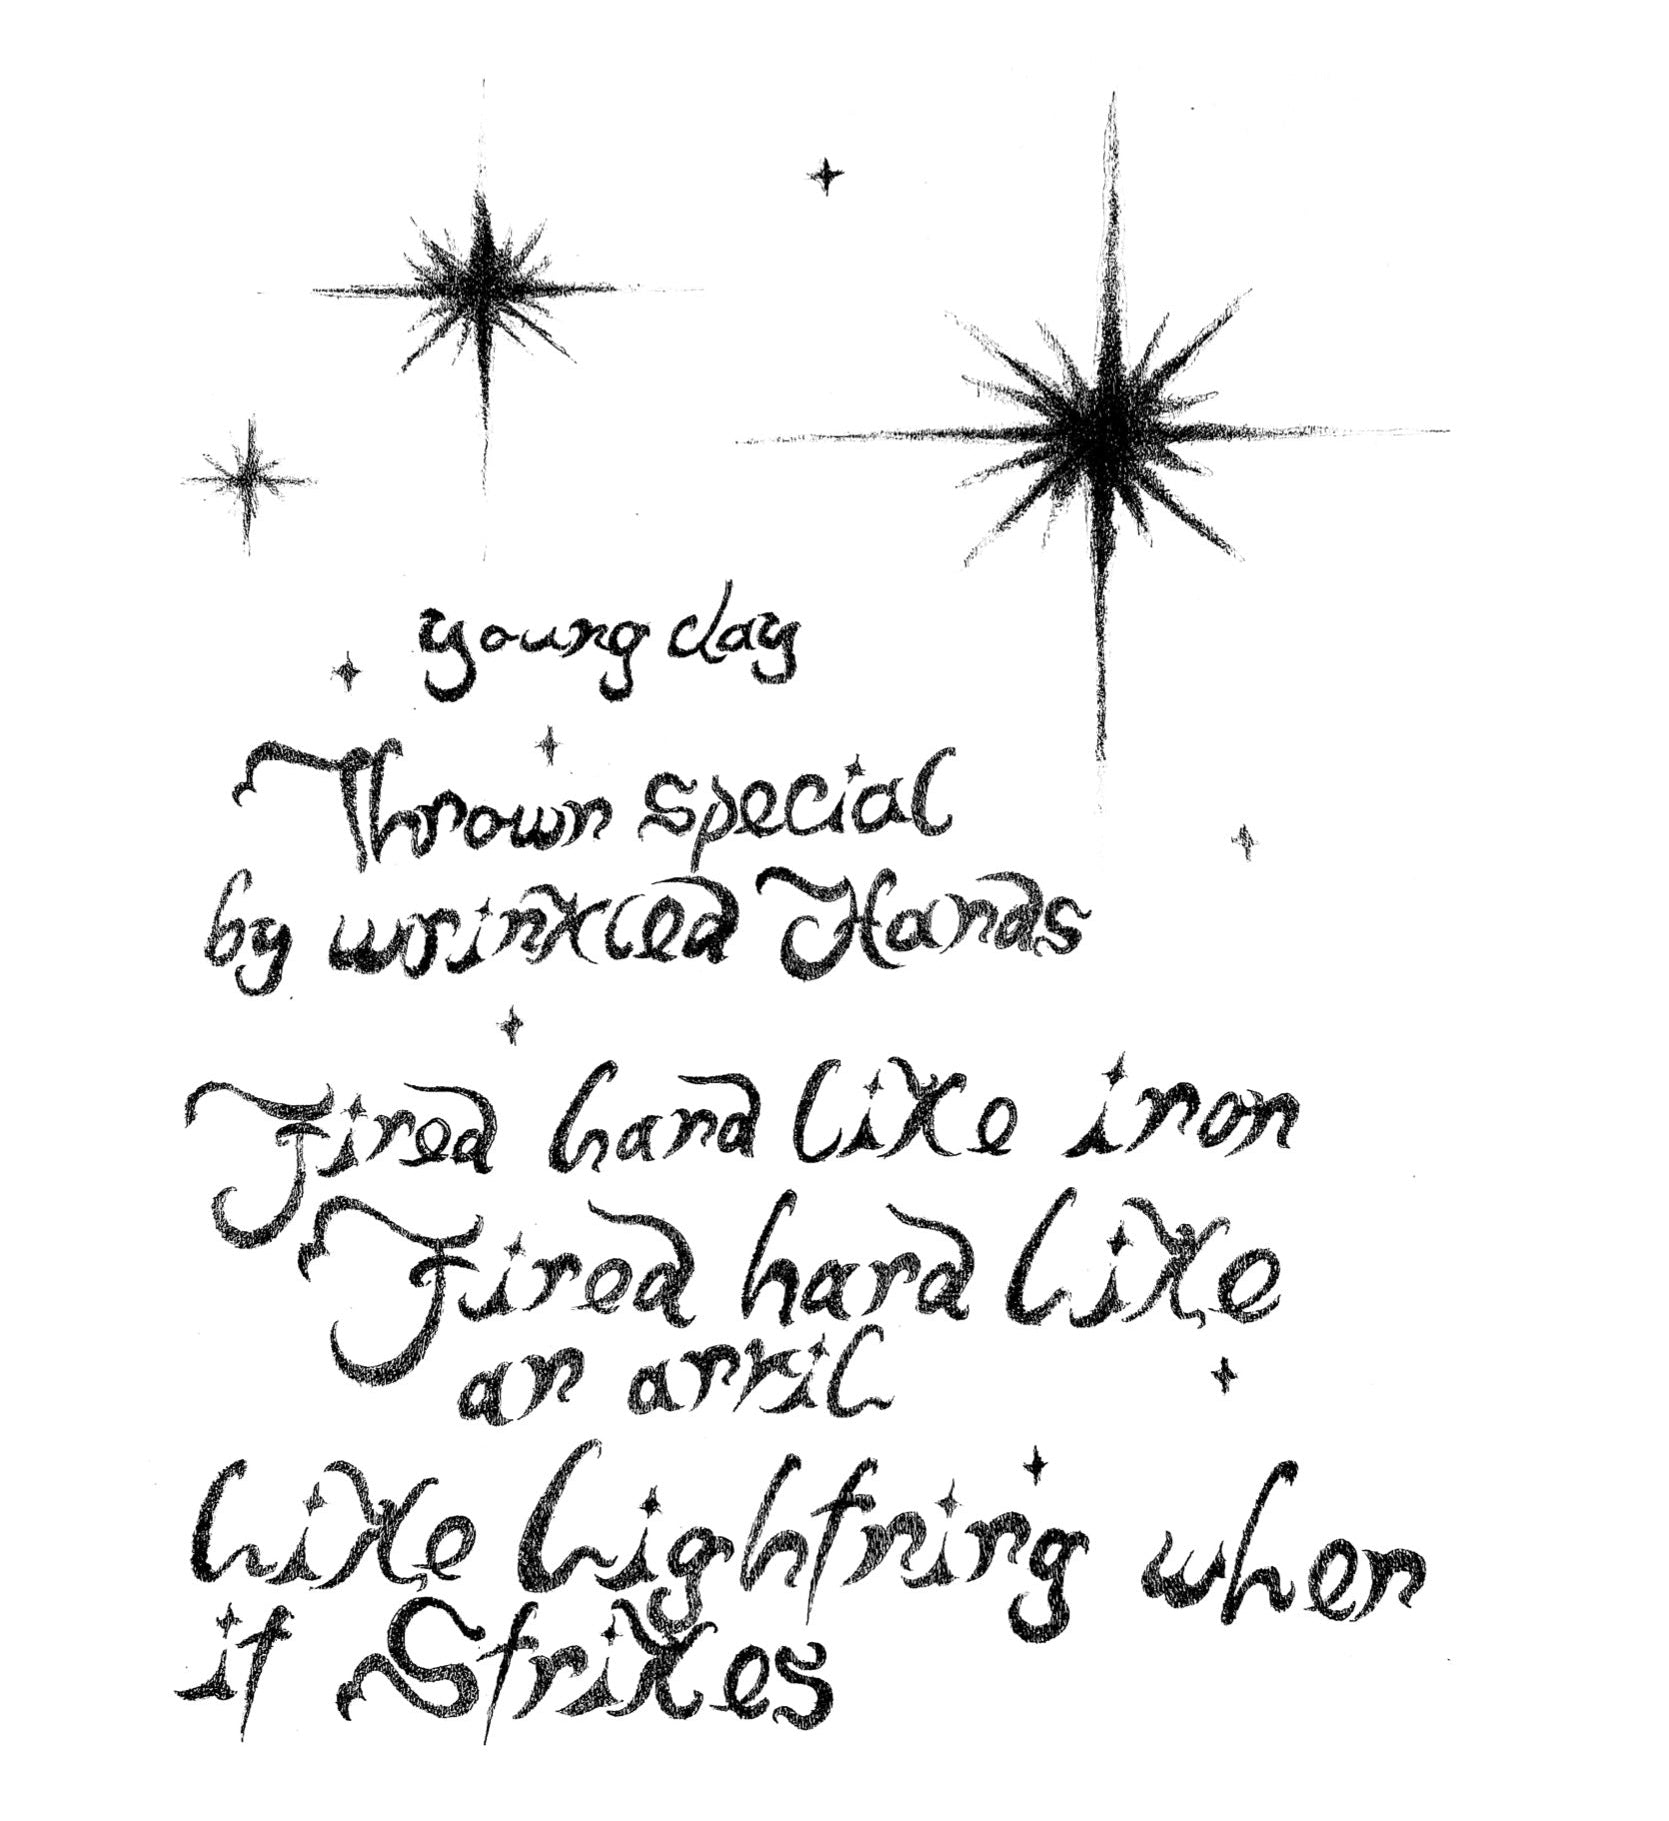 young clay
Thrown special
by wrinkled Hands
Fired hard like iron
Fired hard like
an anvil
Like Lightning when
it Strikes